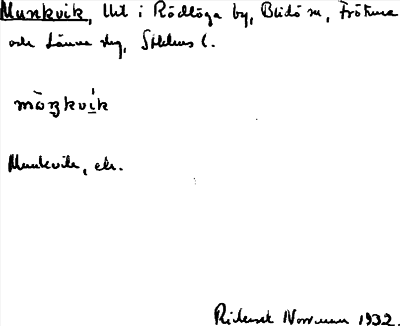 Munkvik, Utl i Rödlöga by, Blidö sn, Frötuna
och Länna skg, Sthlms l.
mùŋkvi̱k
Munkvik, ek.
Rickard Norrman 1932.